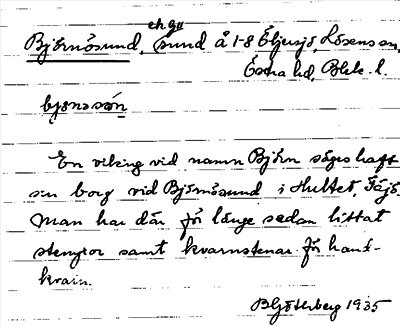 Björnösund, sund å 1-8 Öljersjö, Lösens sn,
Östra hd, Blek. l.
En viking vid namn Björn säges haft
sin borg vid Björnösund i Hultet, Fäjö.
Man har där för länge sedan hittat
stenyxor samt kvarnstenar för hand-
kvarn.
B Götherberg 1935